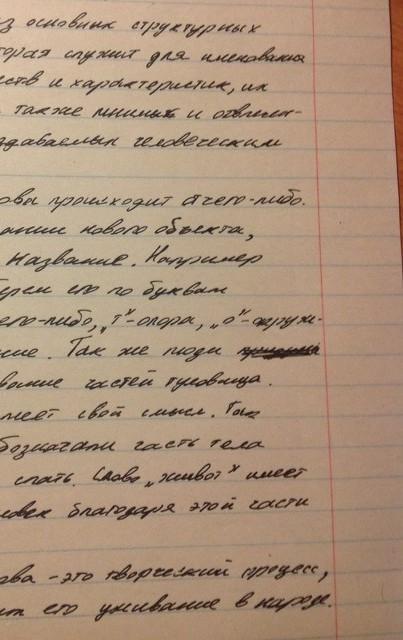 з основных структурных
торая служит для именования
ств и характеристик, их
также мнимых и отвлечен-
здаваемых человеческим
ова происходит от чего-либо.
ании нового объекта,
название. Например
берем его по буквам
его-либо, "т"-опора, "о"-окруж-
ние. Так же люди
вание частей туловища.
меет свой смысл. Так
бозначали часть тела
спать. Слово "живот" имеет
ловек благодаря этой части
ова - это творческий процесс,
его уживание в народе.